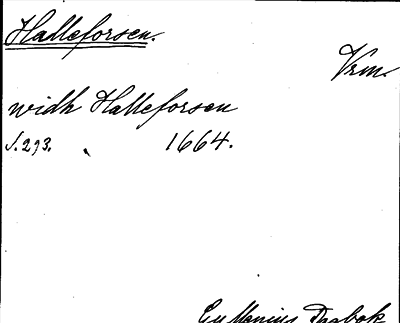 Halleforsen.
Vrm.
widh Halleforsen
S. 293. 1664.
Cu Monius Dagbok